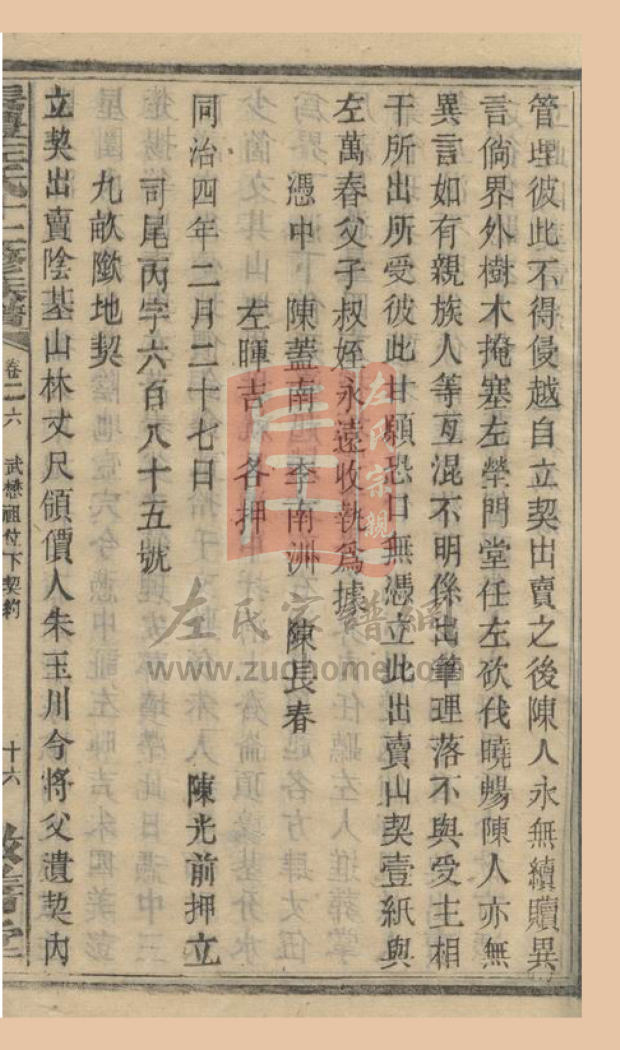 管理彼此不得侵越自立契出賣之後陳人永無續贖異
言倘界外樹木掩塞左塋門堂任左砍伐曉觴陳人亦無
異言如有親族人等互混不明係出筆理落不與受主相
干所出所受彼此甘願恐口無憑立此出賣山契壹紙與
左萬春父子叔姪永遠收執爲據
憑中 陳蓋南 李南洲 陳長春
左暉吉 各押
同治四年二月二十七日 陳光前押立
司尾丙字六百八十五號
九畝墩地契
立契出賣陰基山林丈尺領價人朱玉川今將父遺契內
左氏十二修族譜 卷二六 武懋祖位下契約 十六 敦善堂
左氏宗親
左氏宗譜網
www.zuohome.com